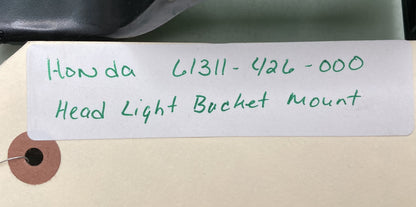 Honda 61311-426-000
Head Light Bucket Mount